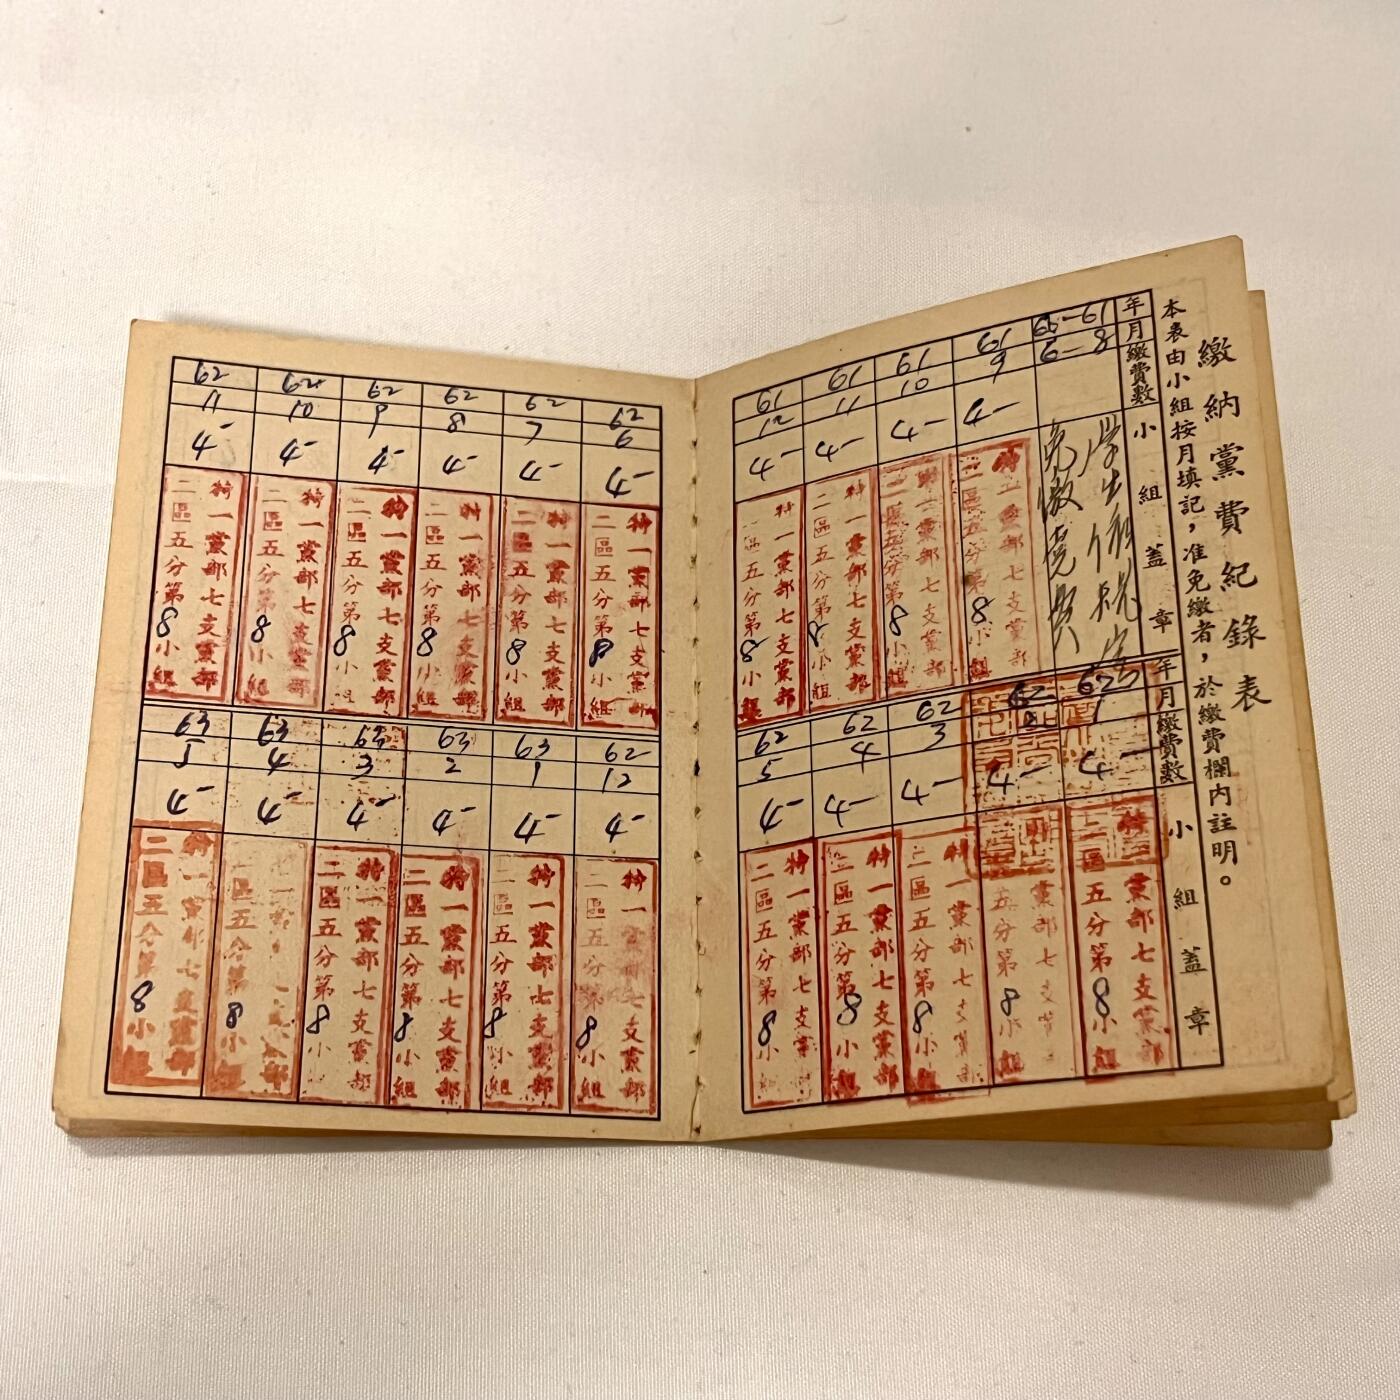 繳納黨費紀錄表
本表由小組按月填記，准免繳者，於繳費欄內註明。
年 月 繳費數 小組蓋章
61 8
學生
免繳黨費
61 9 4-
特一黨部七支黨部
二區五分第8小組
61 10 4-
特一黨部七支黨部
二區五分第8小組
61 11 4-
特一黨部七支黨部
二區五分第8小組
61 12 4-
特一黨部七支黨部
二區五分第8小組
年 月 繳費數 小組蓋章
62 1 4-
特一黨部七支黨部
二區五分第8小組
62 2 4-
特一黨部七支黨部
二區五分第8小組
62 3 4-
特一黨部七支黨部
二區五分第8小組
62 4 4-
特一黨部七支黨部
二區五分第8小組
62 5 4-
特一黨部七支黨部
二區五分第8小組
62 6 4-
特一黨部七支黨部
二區五分第8小組
62 7 4-
特一黨部七支黨部
二區五分第8小組
62 8 4-
特一黨部七支黨部
二區五分第8小組
62 9 4-
特一黨部七支黨部
二區五分第8小組
62 10 4-
特一黨部七支黨部
二區五分第8小組
62 11 4-
特一黨部七支黨部
二區五分第8小組
62 12 4-
特一黨部七支黨部
二區五分第8小組
63 1 4-
特一黨部七支黨部
二區五分第8小組
63 2 4-
特一黨部七支黨部
二區五分第8小組
63 3 4-
特一黨部七支黨部
二區五分第8小組
63 4 4-
特一黨部七支黨部
二區五分第8小組
63 5 4-
特一黨部七支黨部
二區五分第8小組